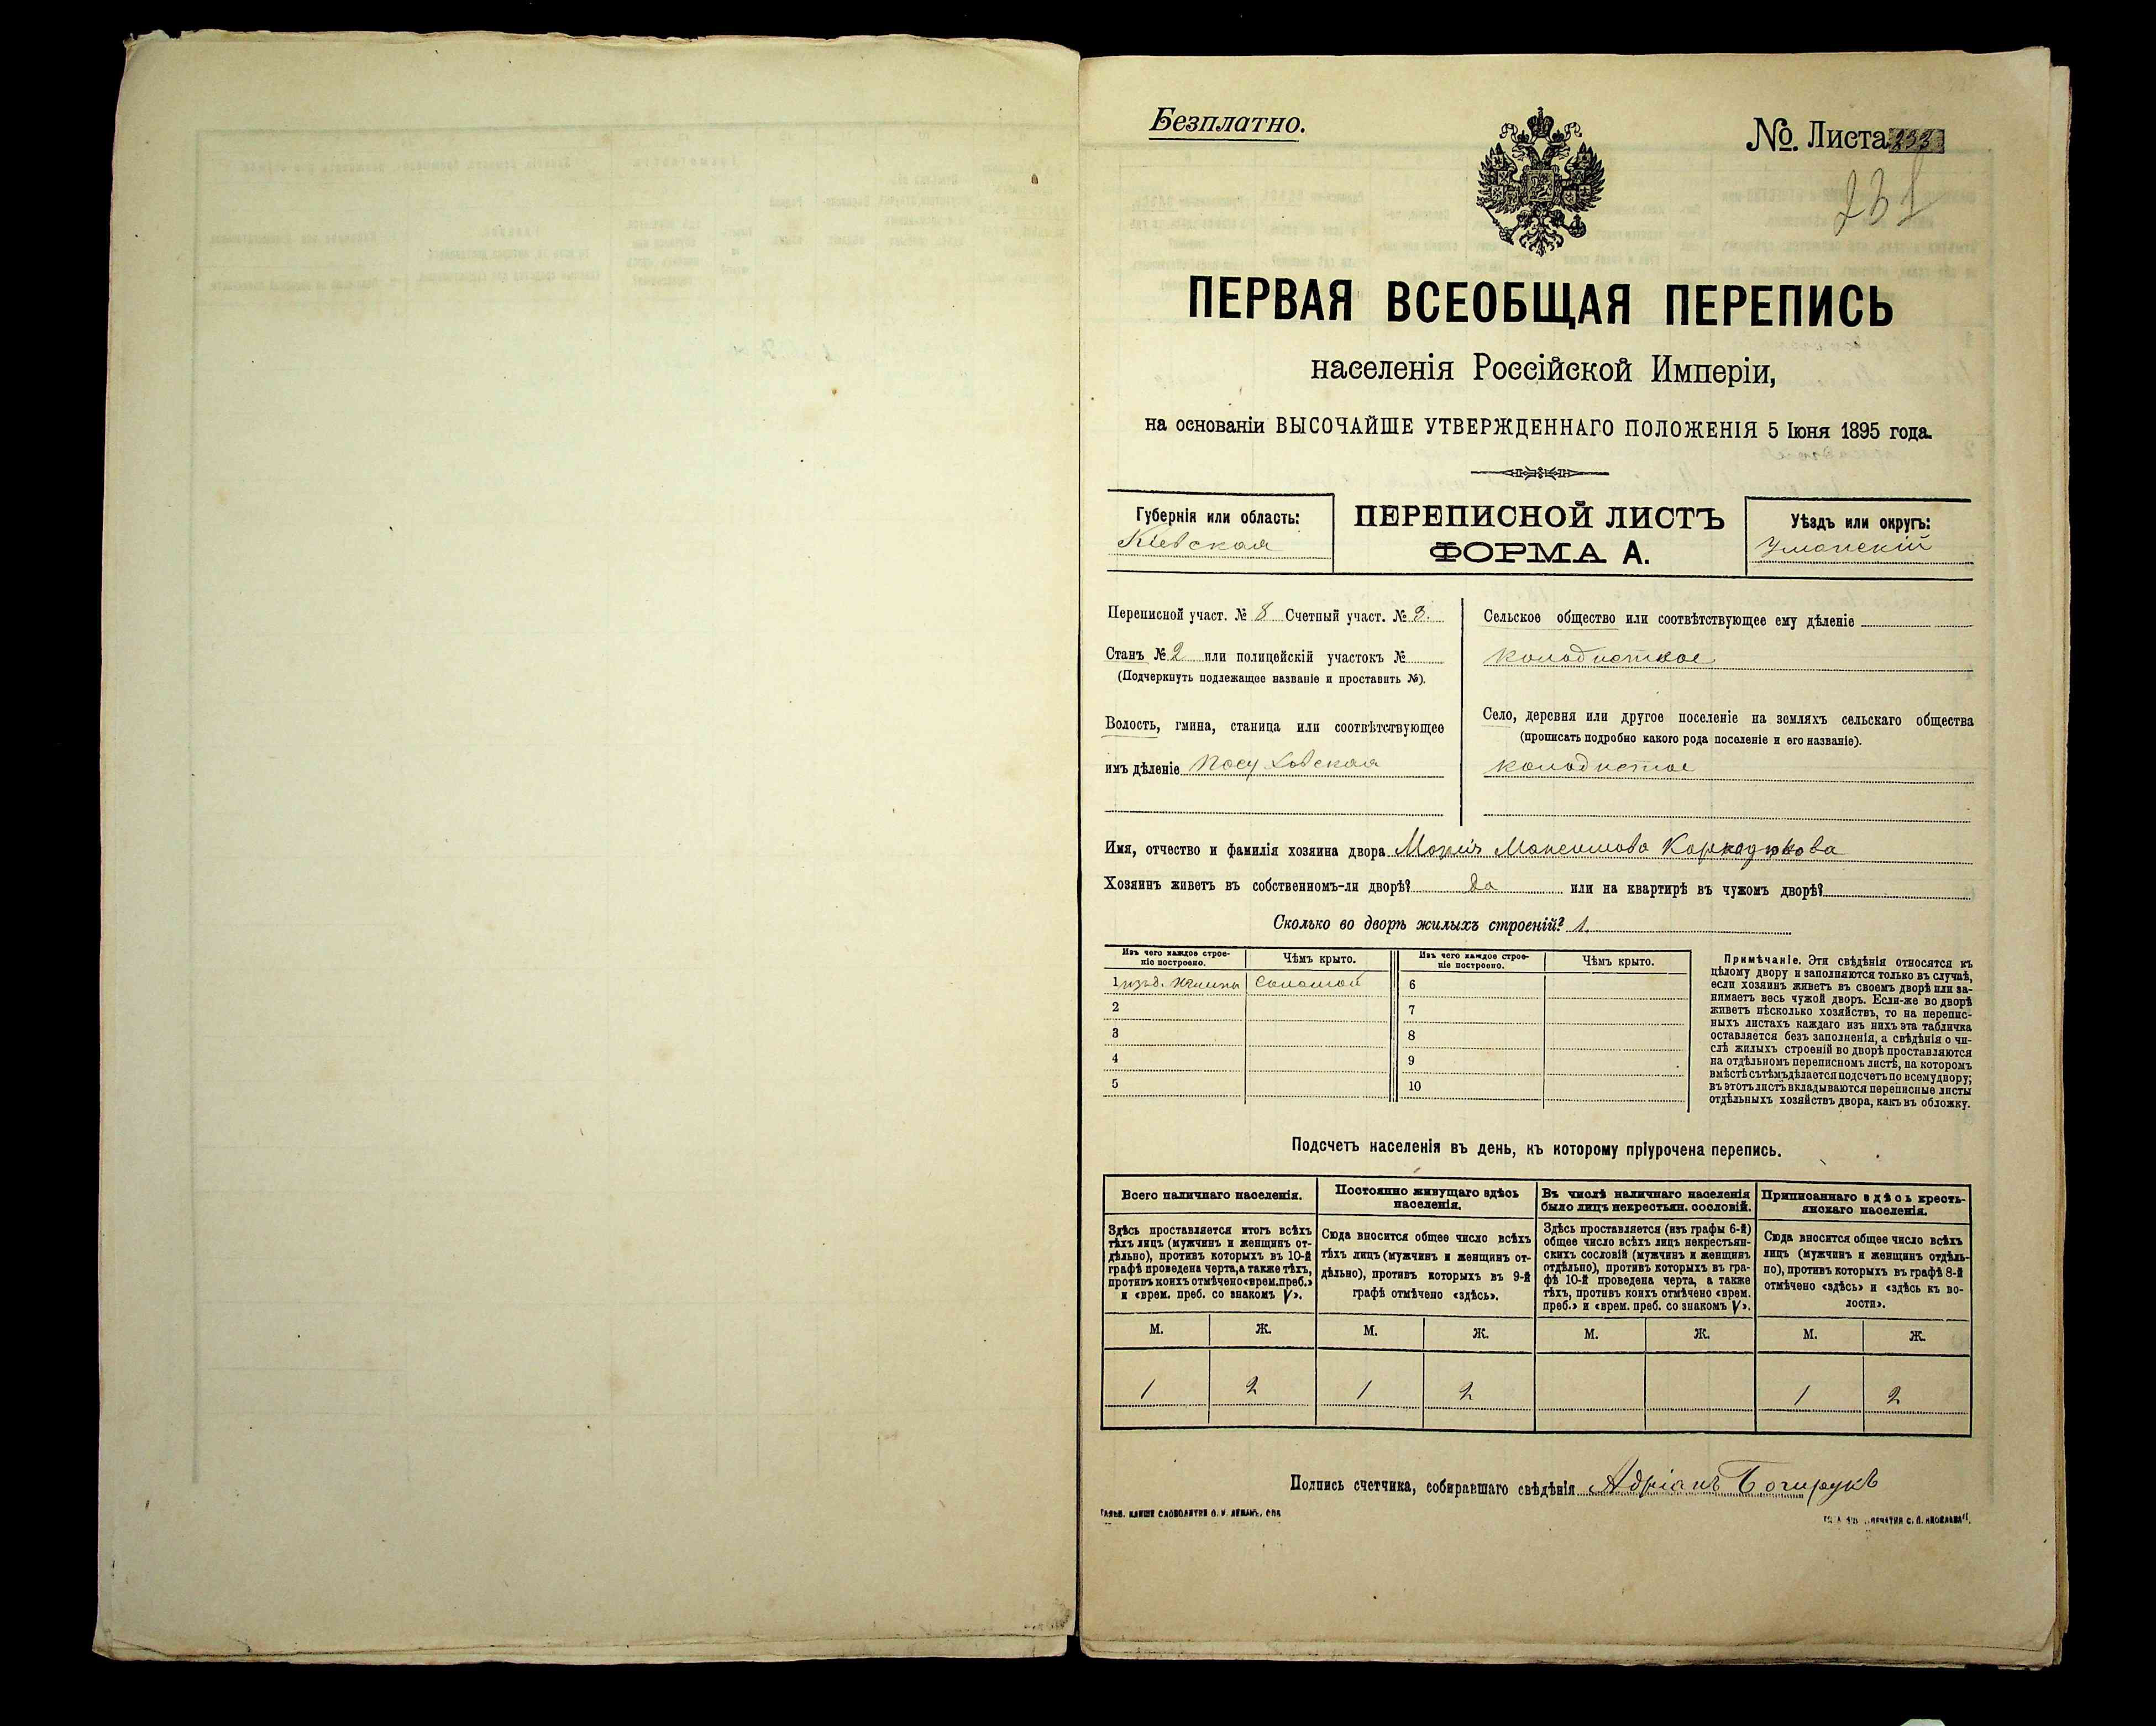 Безплатно.
№. Листа 233
ПЕРВАЯ ВСЕОБЩАЯ ПЕРЕПИСЬ
населенія Россійской Имперіи,
на основаніи ВЫСОЧАЙШЕ УТВЕРЖДЕННАГО ПОЛОЖЕНІЯ 5 Іюня 1895 года.
Губернія или область:
Кіевская
ПЕРЕПИСНОЙ ЛИСТЪ
ФОРМА А.
Уѣздъ или округъ:
Уманскій
Переписной участ. № 8 Счетный участ. № 3.
Станъ № 2 или полицейскій участокъ №
(Подчеркнуть подлежащее названіе и проставить №).
Волость, гмина, станица или соотвѣтствующее
имъ дѣленіе Посуховская
Сельское общество или соотвѣтствующее ему дѣленіе
колодистское
Село, деревня или другое поселеніе на земляхъ сельскаго общества
(прописать подробно какого рода поселеніе и его названіе).
колодистое
Имя, отчество и фамилія хозяина двора Марія Максимова
Хозяинъ живетъ въ собственномъ-ли дворѣ? да или на квартирѣ въ чужомъ дворѣ?
Сколько во дворѣ жилыхъ строеній? 1.
Изъ чего каждое строе-
ніе построено.
Чѣмъ крыто.
Изъ чего каждое строе-
ніе построено.
Чѣмъ крыто.
1 глины Соломой 6
2 7
3 8
4 9
5 10
Примѣчаніе. Эти свѣдѣнія относятся къ
цѣлому двору и заполняются только въ случаѣ,
если хозяинъ живетъ въ своемъ дворѣ или за-
нимаетъ весь чужой дворъ. Если-же во дворѣ
живетъ нѣсколько хозяйствъ, то на перепис-
ныхъ листахъ каждаго изъ нихъ эта табличка
оставляется безъ заполненія, а свѣдѣнія о чи-
слѣ жилыхъ строеній во дворѣ проставляются
на отдѣльномъ переписномъ листѣ, на которомъ
вмѣстѣ съ тѣмъ дѣлается подсчетъ по всему двору;
въ этотъ листъ вкладываются переписные листы
отдѣльныхъ хозяйствъ двора, какъ въ обложку.
Подсчетъ населенія въ день, къ которому пріурочена перепись.
Всего наличнаго населенія.
Здѣсь проставляется итогъ всѣхъ
тѣхъ лицъ (мужчинъ и женщинъ от-
дѣльно), противъ которыхъ въ 10-й
графѣ проведена черта, а также тѣхъ,
противъ коихъ отмѣчено «врем. преб.»
и «врем. преб. со знакомъ V».
Постоянно живущаго здѣсь
населенія.
Сюда вносится общее число всѣхъ
тѣхъ лицъ (мужчинъ и женщинъ от-
дѣльно), противъ которыхъ въ 9-й
графѣ отмѣчено «здѣсь».
Въ числѣ наличнаго населенія
было лицъ некрестьян. сословій.
Здѣсь проставляется (изъ графы 6-й)
общее число всѣхъ лицъ некрестьян-
скихъ сословій (мужчинъ и женщинъ
отдѣльно), противъ которыхъ въ гра-
фѣ 10-й проведена черта, а также
тѣхъ, противъ коихъ отмѣчено «врем.
преб.» и «врем. преб. со знакомъ V».
Приписаннаго здѣсь кресть-
янскаго населенія.
Сюда вносится общее число всѣхъ
лицъ (мужчинъ и женщинъ отдѣль-
но), противъ которыхъ въ графѣ 8-й
отмѣчено «здѣсь» и «здѣсь къ во-
лости».
М. Ж. М. Ж. М. Ж. М. Ж.
1 2 1 2 1 2
Подпись счетчика, собиравшаго свѣдѣнія Адріанъ